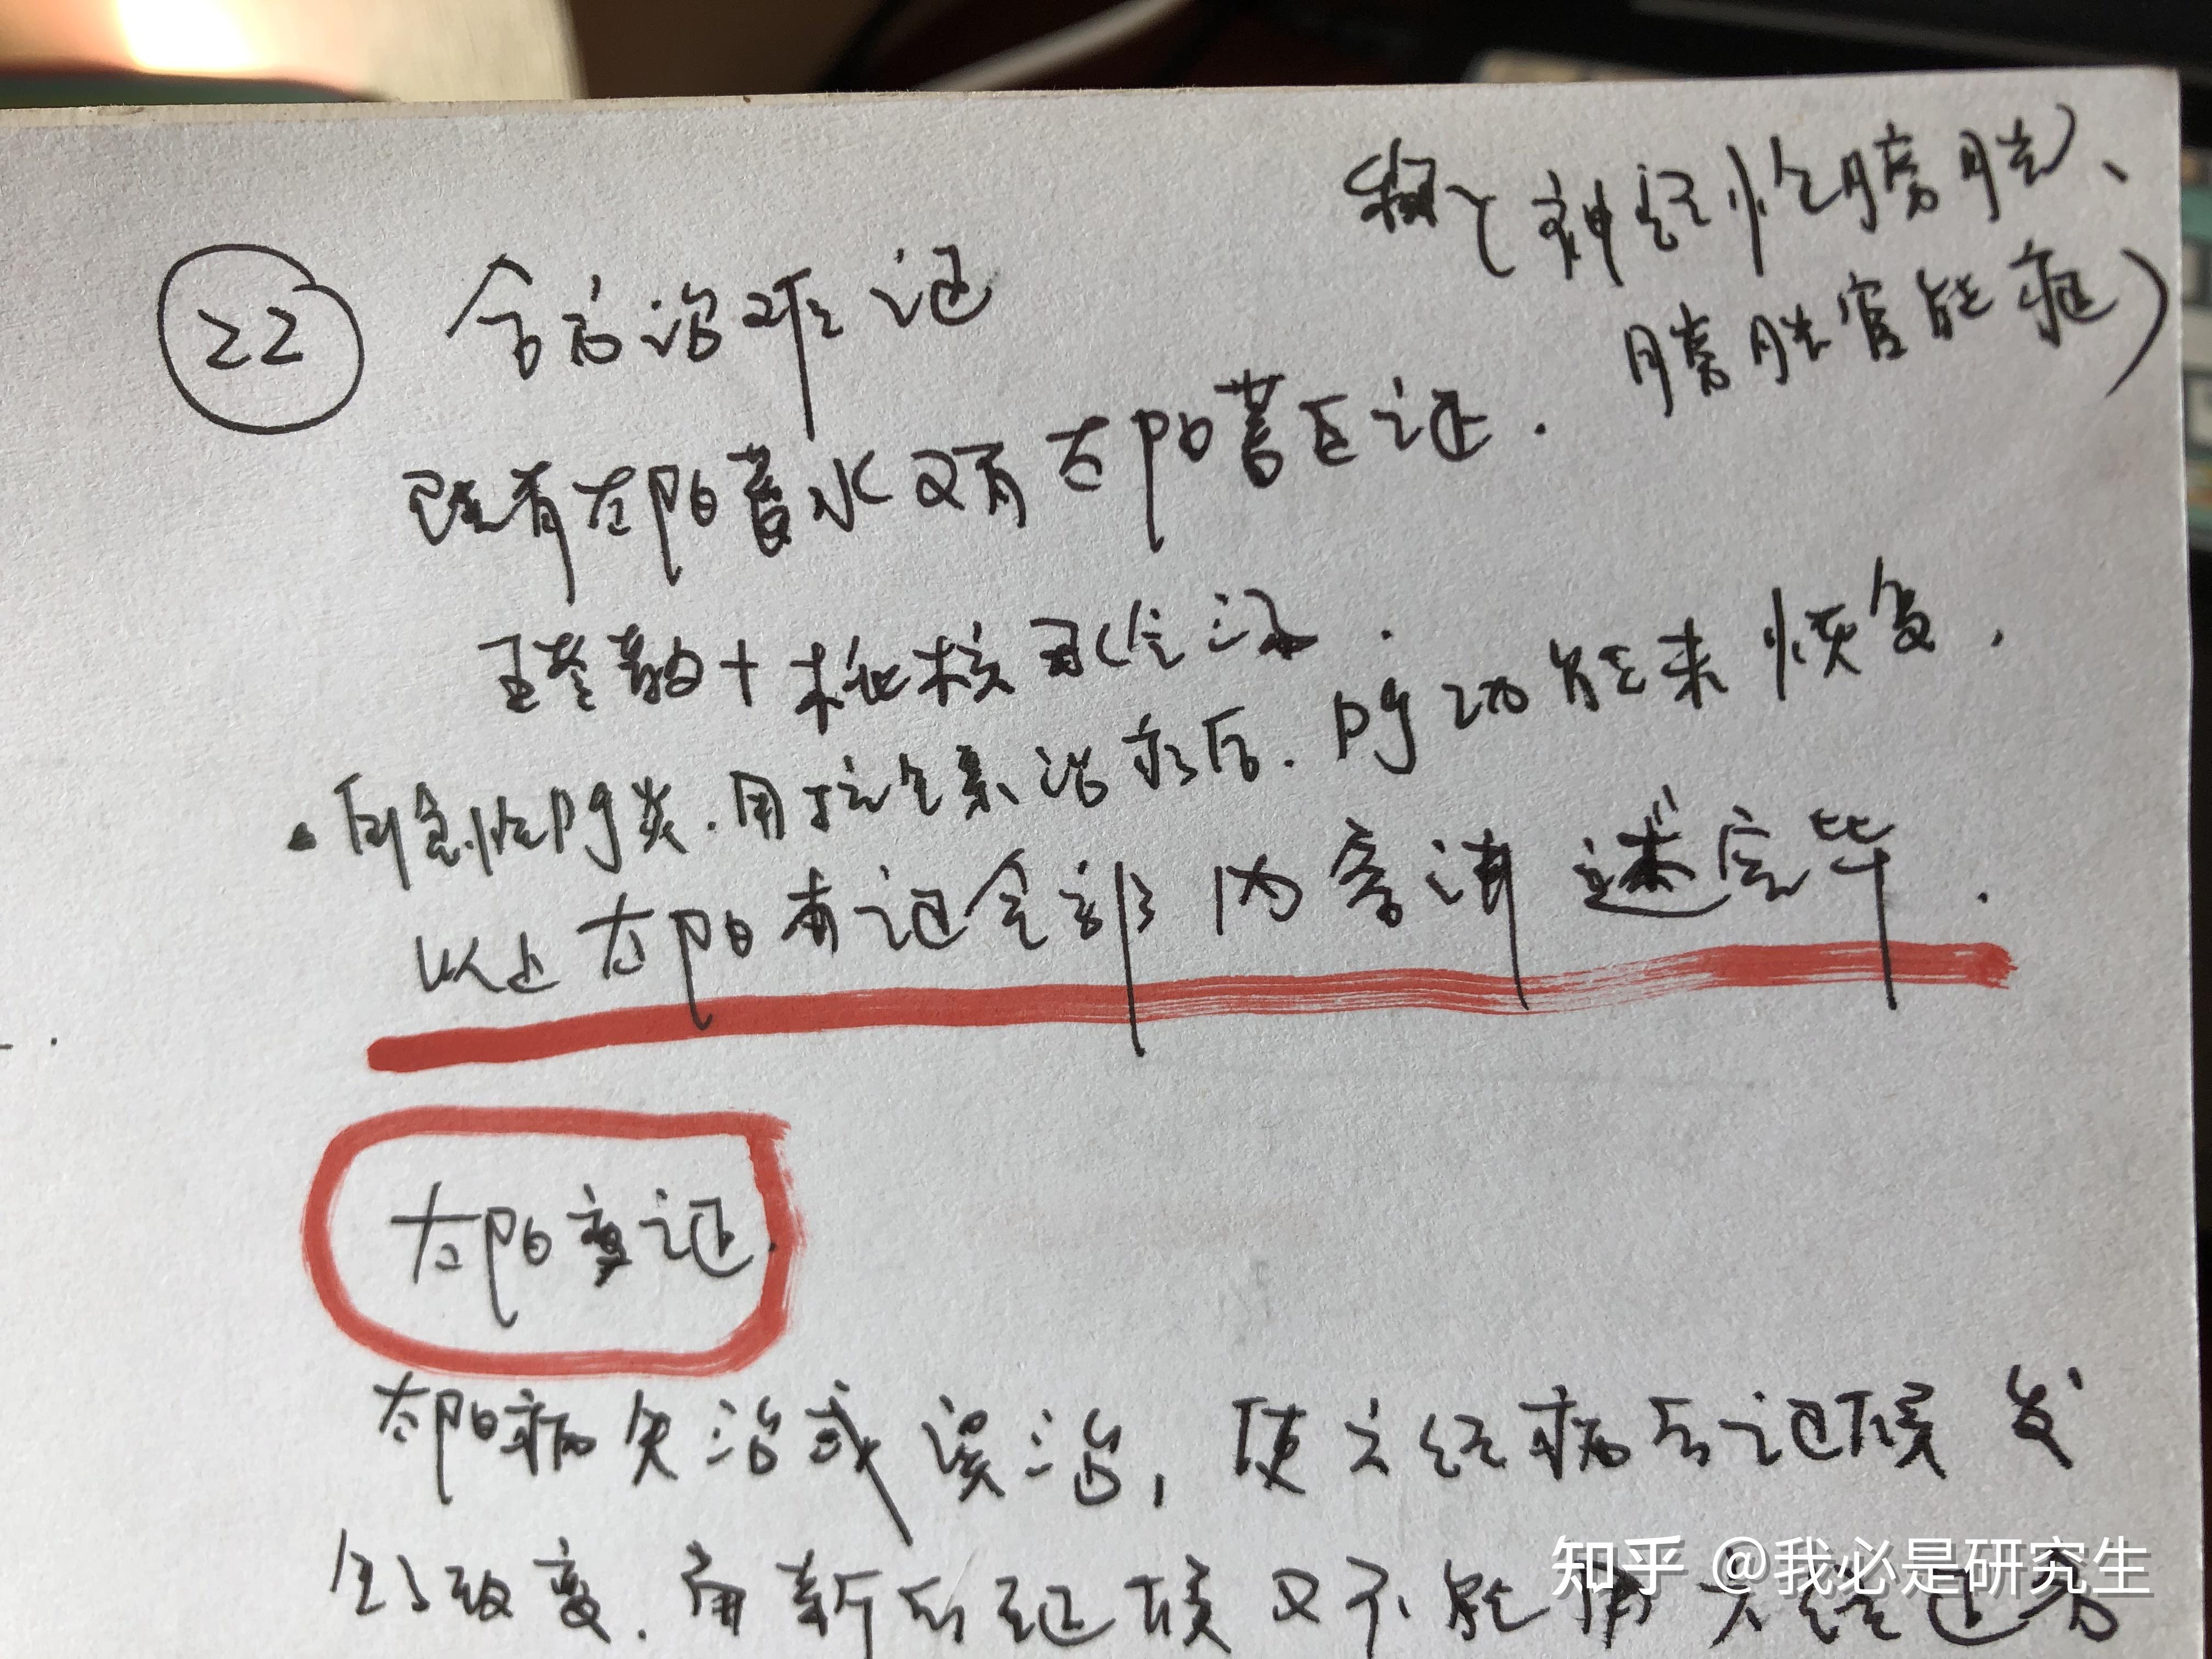 ㉒ 合方治难证
(神经性膀胱、
膀胱官能症)
既有太阳蓄水又有太阳蓄血证.
五苓散+桃核承气汤.
·有急性肾炎.用抗生素治疗后.肾功能未恢复,
以上太阳本证全部内容讲述完毕.
太阳变证.
太阳病失治或误治,使六经病的证候发
生改变.而新的证候又不能用六经证
知乎 @我必是研究生